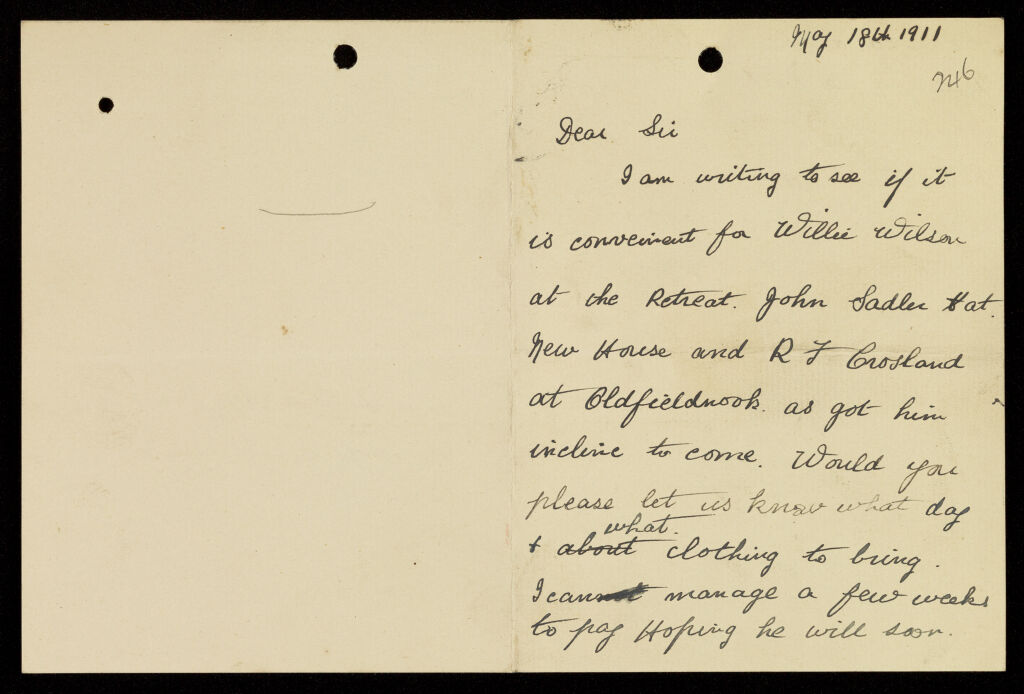 May 18th 1911
746
Dear Sir
I am writing to see if it
is convenient for Willie Wilson
at the Retreat. John Sadler at.
New House and R F Crosland
at Oldfieldnook. as got him
incline to come. Would you
please let us know what day
what.
+ about clothing to bring.
I cannot manage a few weeks
to pay Hoping he will soon.